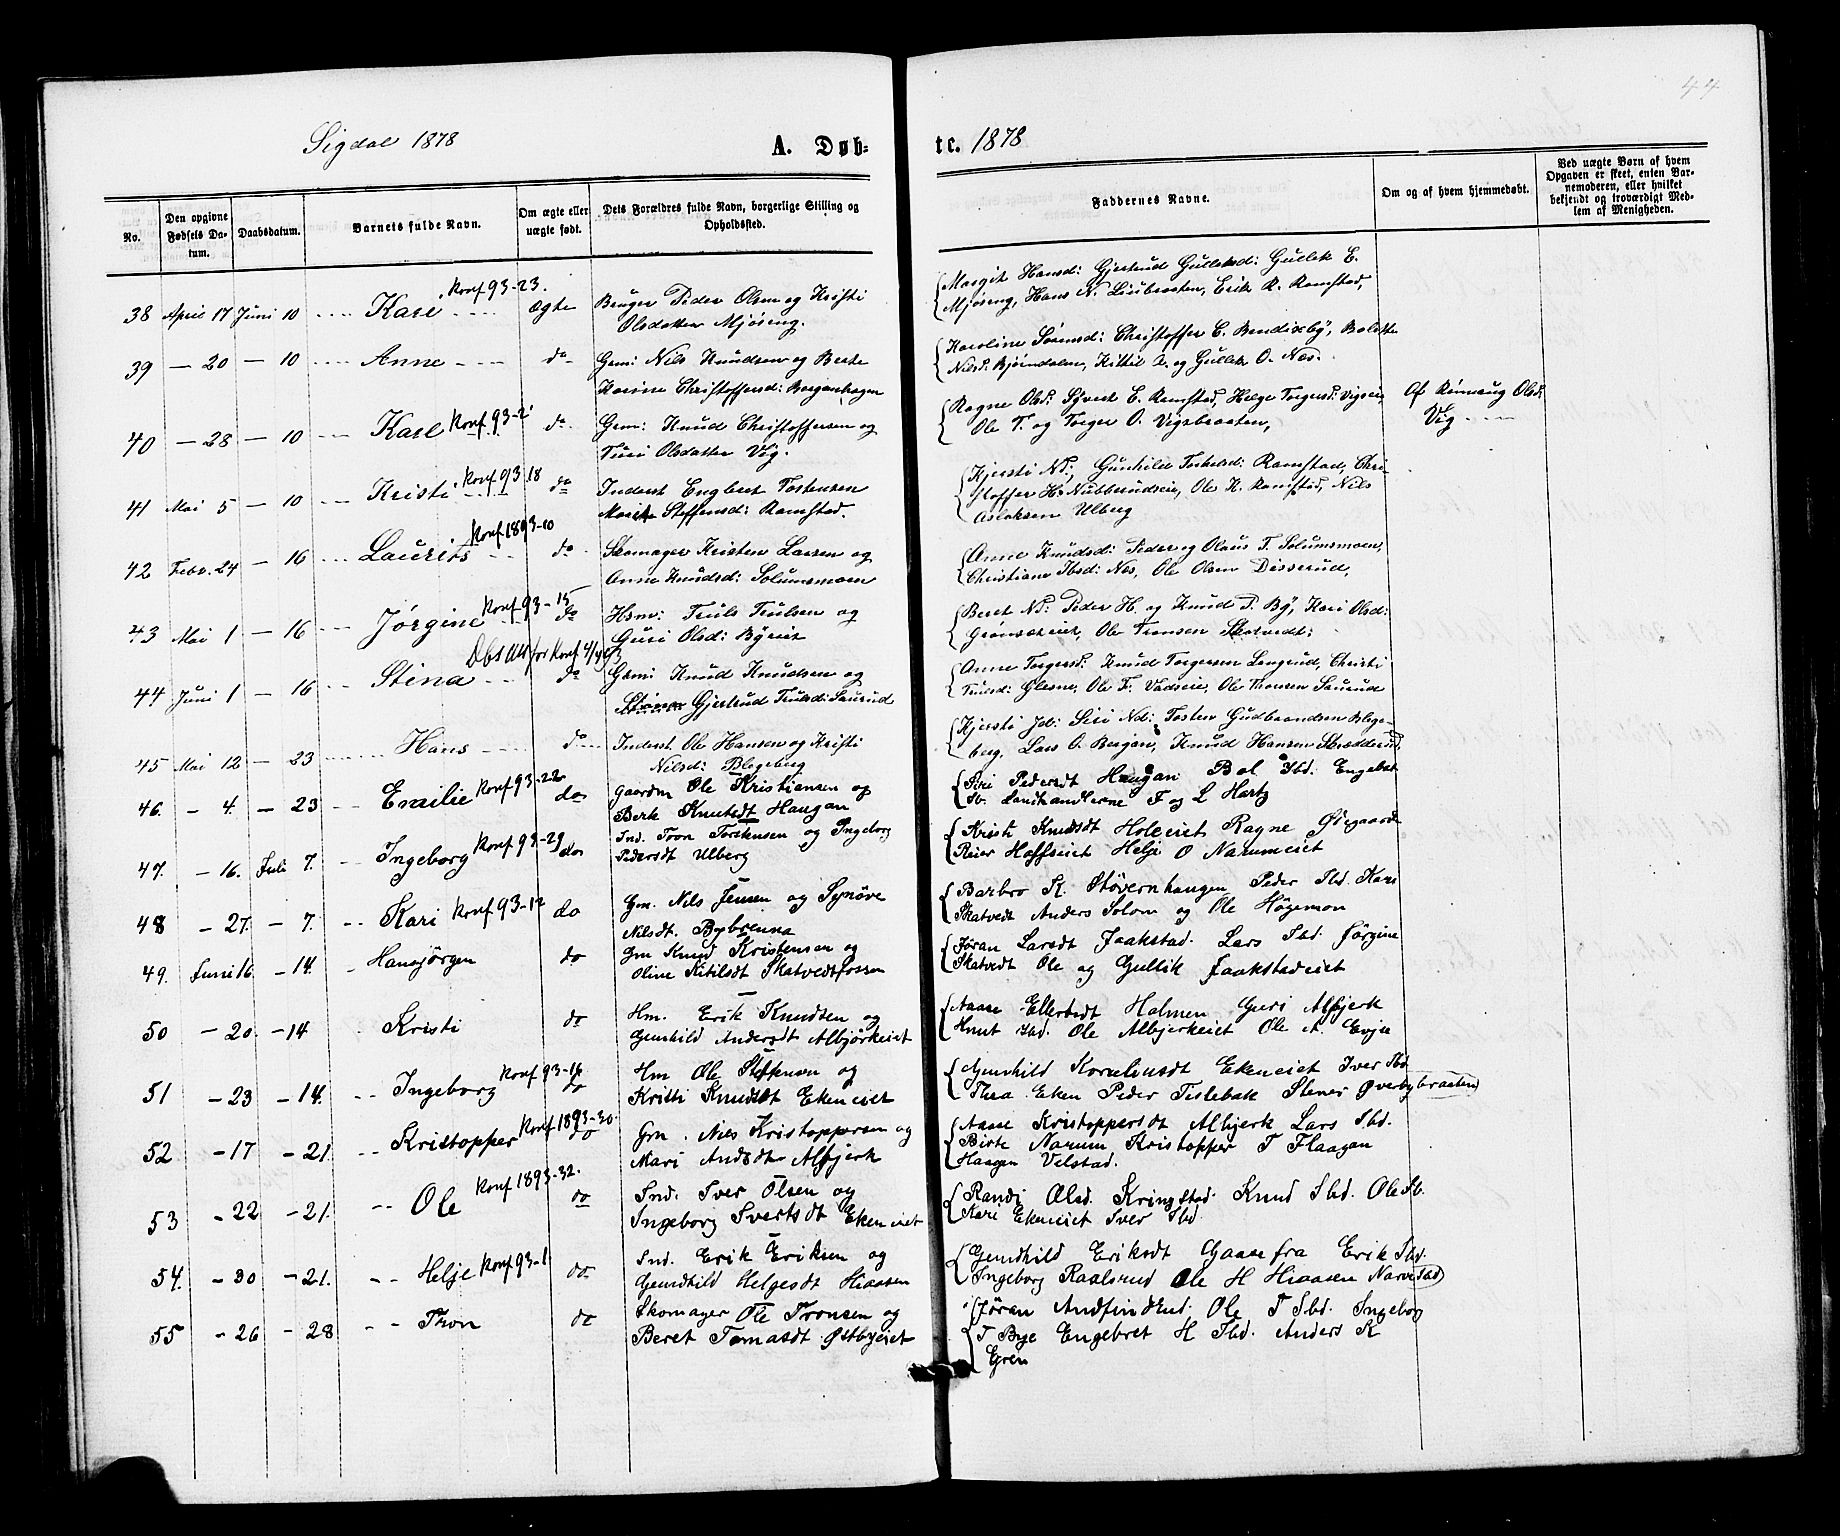 44
Sigdal 1878 A. Døb-
te. 1878
No.
Den opgivne Fødsels Datum.
Daabsdatum.
Barnets fulde Navn.
Om ægte eller uægte født.
Dets Forældres fulde Navn, borgerlige Stilling og Opholdssted.
Faddernes Navne.
Om og af hvem hjemmedøbt.
Ved uægte Børn af hvem Opgaven er skeet, enten Barnemoderen, eller hvilket bekjendt og troværdigt Medlem af Menigheden.
38 April 17 Juni 10 Kari Konf 93-23. Ægte Bruger Peder Olsen og Kristi
Olsdatter Mjøseng.
Margit Hansd: Gjertrud Gulleksd: Gullek E.
Mjøseng, Hans N. Liubraaten, Erik R. Ramstad,
39 - 20 - 10 Anne do Gm: Nils Knudsen og Berte
Karine Christoffersd: Borgenhagen
Karoline Sørensd: Christoffer C. Bendixby,
Nilsd. Bjørndalen, Kittil A. og Gullek O. Næs.
40 - 28 - 10 Kari Konf 93-2 do Grm: Knud Christoffersen og
Turi Olsdatter Vig.
Ragne Olsd. Syvert E. Ramstad, Helge Torgersd: Vigseie,
Ole T. og Torger O. Vigsbraaten,
Af Rønnaug Olsd.
Vig
41 Mai 5 - 10 Kristi Konf 93 18 do Inderst Engbret Tostensen
Marit Steffensd: Ramstad.
Kjersti Nd; Gunhild Torkelsd: Ramstad, Chri-
stoffer H. Nubberudseie, Ole K. Ramstad, Nils
Aslaksen Ulberg
42 Febr. 24 - 16 Laurits Konf 1893-10 do Skomager Kristen Larsen og
Anne Knudsd: Solumsmoen
Anne Knudsd: Peder og Olaus T. Solumsmoen,
Christiane Ibsd: Næs, Ole Olsen Disserud,
43 Mai 1 - 16 Jørgine Konf 93-15 do Hsm: Truls Trulsen og
Guri Olsd: Byeiet
Beret Nd: Peder H. og Knud P. By, Kari Olsd:
Ole Tronsen Skatvedt:
44 Juni 1 - 16 Stina do Gsm: Knud Knudsen og
Gjertrud Trulsd: Saurud
Anne Torgersd: Knud Torgersen Lengrud, Christi
Trulsd: Glesne, Ole F. Vadseie, Ole Thorsen Saurud
45 Mai 12 - 23 Hans do Inderst Ole Hansen og Kristi
Nilsd: Blegeberg
Kjersti Jd: Siri Nd: Tosten Gudbrandsen Blege-
berg, Lars O. Bergan, Knud Hansen Skredderud,
46. - 4. - 23 Emilie Konf 93-22 do Gaardm Ole Kristiansen og
Berte Knutsdt Haugan
Siri Pedersdt Haugan Bol Ibd. Engebet
Ib. Landhandlerne F og L Hartz
47. - 16. Juli 7. Ingeborg Konf 93-29 do Ind. Tron Torstensen og Ingeborg
Pedersdt Ulberg
Kristi Knudsdt Holeeiet Ragne Ødegaard
Reier Hoffseiet Helje O Narumeiet
48 - 27. - 7. Kari Konf 93-12 do Gm. Nils Jensen og Synøve
Nilsdt. Bybrenna
Barbro K. Støvernhaugen Peder Ibd. Kari
Skatvedt Anders Solom og Ole Høgemon
49. Juni 16 - 14. Hansjørgen do Gm Knud Kristensen og
Oline Kitilsdt Skatvedtfossen
Jøran Larsdt Jaakstad. Lars Ibd. Jørgine
Skatvedt Ole og Gullik Jaakstadeiet
50 - 20. - 14 Kristi do Hm. Erik Knudsen og
Gunhild Andersdt Albjørkeiet
Aaase Ellertsdt Holmen Guri Albjerk
Knut Ibd. Ole Albjerkeiet Ole A. Evju
51 - 23 - 14. Ingeborg Konf 93-16 do Hm Ole Steffensen og
Kristi Knudsdt Ekeneiet
Gunhild Korneliusdt Ekeneiet Iver Ibd
Thea Eken Peder Tislebak Stener Øverbybraaten
52 - 17 - 21. Kristopper Konf 1893-30. do Gm. Nils Kristoppersen og
Mari Andsdt Albjerk
Aase Kristoppersdt Albjerk Lars Ibd.
Birte Narum Kristopper T Flaagan
Haagen Velstad.
53 - 22 - 21. Ole Konf 1893-32. do Ind. Iver Olsen og
Ingeborg Ivertsdt Ekeneiet
Randi Olsd. Kringstad. Knud Ibd. Ole Ib.
Kari Ekeneiet Iver Ibd
54. - 30 - 21. Helje Konf 93-1 do Ind. Erik Eriksen og
Gundhild Helgesdt Hiaasen
Gundhild Eriksdt Gaasefra Erik Ibd.
Ingeborg Raalsrud Ole H Hiaasen Narve Ibd
55 - 26 - 28 Thron do Skomager Ole Tronsen og
Beret Tomasdt Østbyeiet
Jøran Andfindsrud. Ole T Ibd. Ingeborg
T Bye Engebret H Ibd. Anders K
Gren